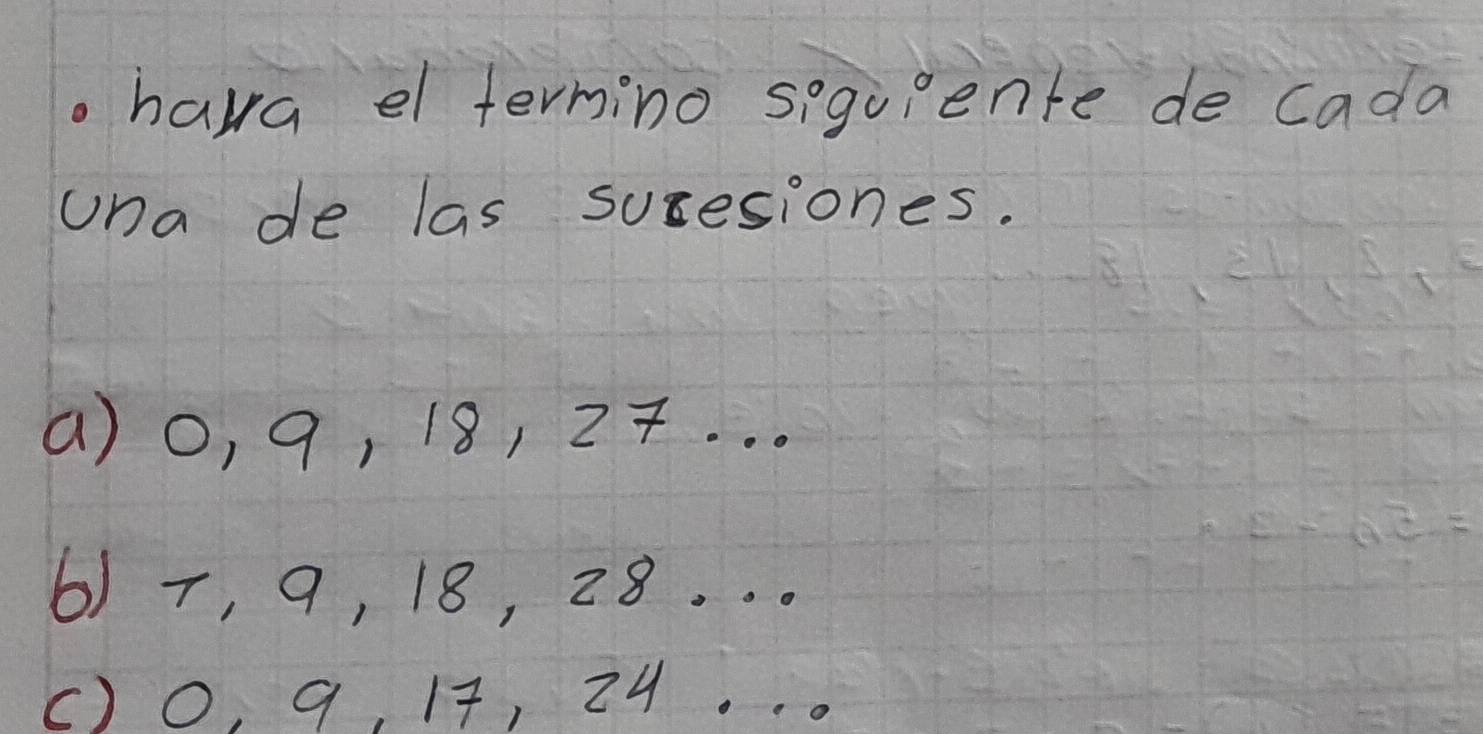 • haya el termino siguiente de cada
una de las sucesiones.
a) 0, 9, 18, 27...
b) 1, 9, 18, 28...
c) 0, 9, 17, 24...